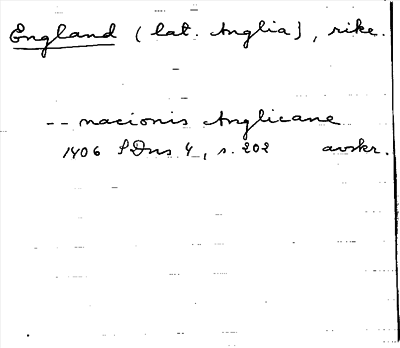 England (lat. Anglia), rike.
-- nacionis Anglicane
1406 SDns 4, s. 202 avskr.